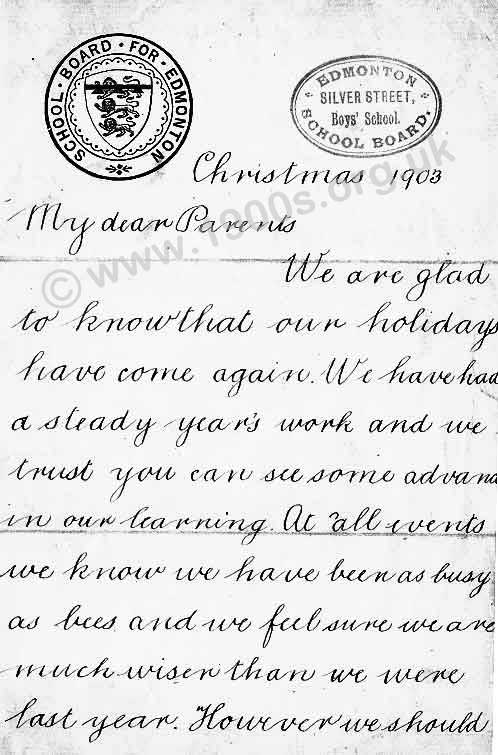 SCHOOL · BOARD · FOR · EDMONTON
EDMONTON
SILVER STREET,
Boys' School.
SCHOOL BOARD.
Christmas 1903
My dear Parents
© www.1900s.org.uk
We are glad
to know that our holidays
have come again. We have had
a steady year's work and we
trust you can see some advanc
in our learning. At all events
we know we have been as busy
as bees and we feel sure we are
much wiser than we were
last year. However we should